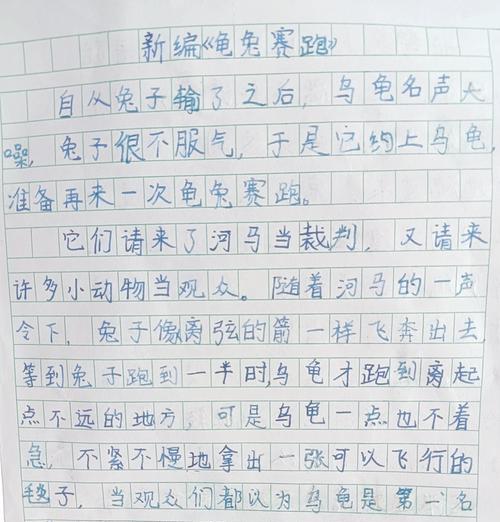 新编《龟兔赛跑》
自从兔子输了之后,乌龟名声大
噪,兔子很不服气,于是它约上乌龟,
准备再来一次龟兔赛跑。
它们请来了河马当裁判,又请来
许多小动物当观众。随着河马的一声
令下,兔子像离弦的箭一样飞奔出去,
等到兔子跑到一半时,乌龟才跑到离起
点不远的地方,可是乌龟一点也不着
急,不紧不慢地拿出一张可以飞行的
毯子,当观众们都以为乌龟是第一名